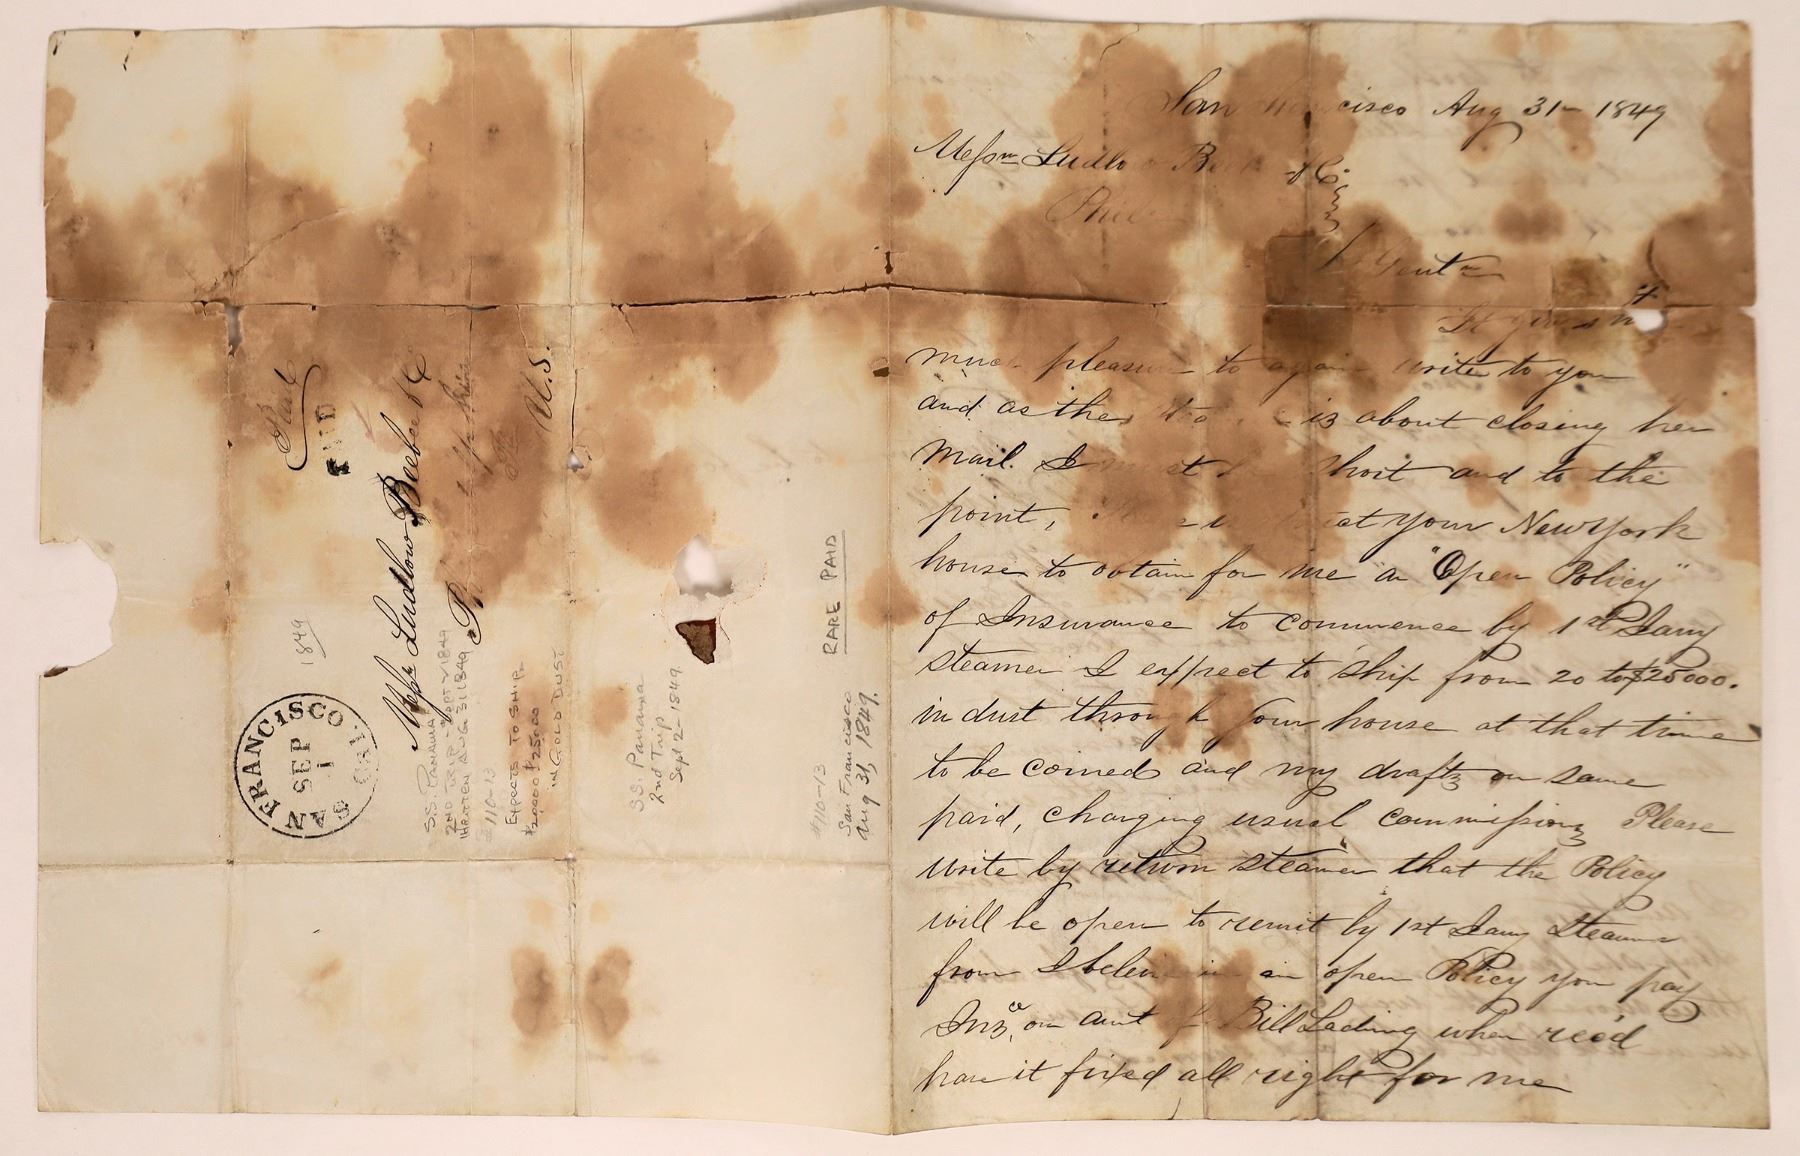 San Francisco Aug 31 - 1849
Messrs Ludlow Beebee & Co
Phila
Gentn
It gives me
much pleasure to again write to you
and as the is about closing her
Mail. I must be short and to the
point, that your New York
house to obtain for me "an "Open Policy"
of Insurance to commence by 1st Jany
steamer I expect to ship from 20 to $25000.
in dust through your house at that time
to be coined and my drafts on same
paid, charging usual commissions Please
write by return steamer that the Policy
will be open to remit by 1st Jany Steamer
from I believe in an open Policy you pay
Insce, on amt of Bill Lading when rec'd
have it fixed all right for me
Paid
PAID
Messrs Ludlow Beebee & Co
Philadelphia
Pa
U.S.
1849
SAN FRANCISCO Cal.
SEP
1
S.S. PANAMA
2ND TRIP - SEPT 2 1849
WRITTEN AUG 31 1849
#110-13
EXPECTS TO SHIP
$20000 - $25000
IN GOLD DUST
SS. Panama
2nd Trip
Sept 2 - 1849
RARE PAID
#110-13
San Francisco
Aug 31, 1849.